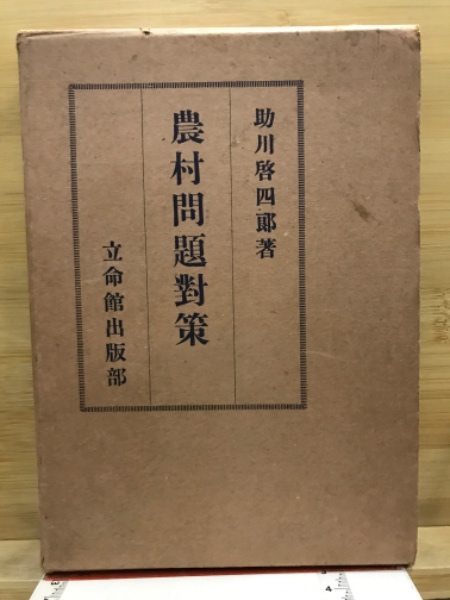 助川啓四郎著
農村問題對策
立命館出版部
4